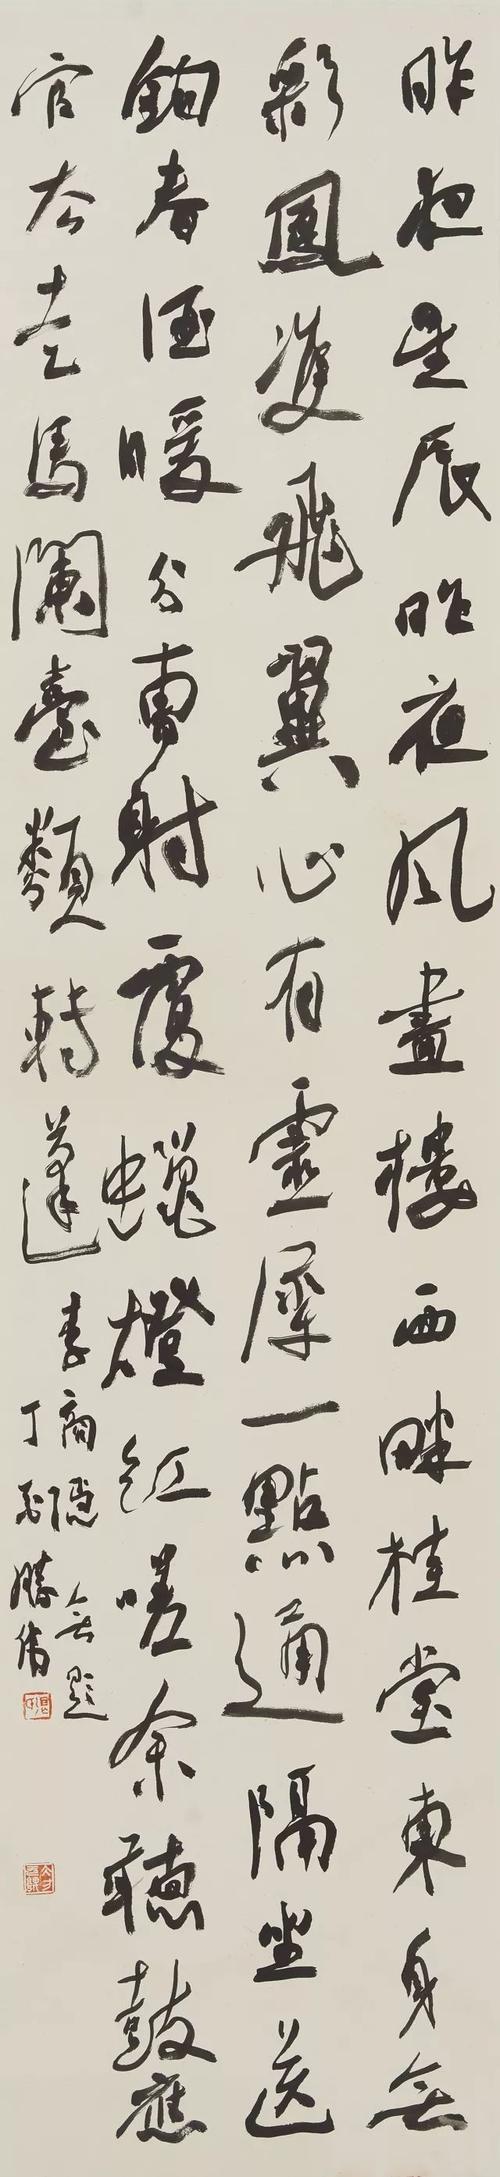 昨夜星辰昨夜風畫樓西畔桂堂東身無
彩鳳雙飛翼心有靈犀一點通隔坐送
鉤春酒暖分曹射覆蠟燈紅嗟余聽鼓應
官去走馬闌臺類轉蓬
李商隱無題
丁勝偉